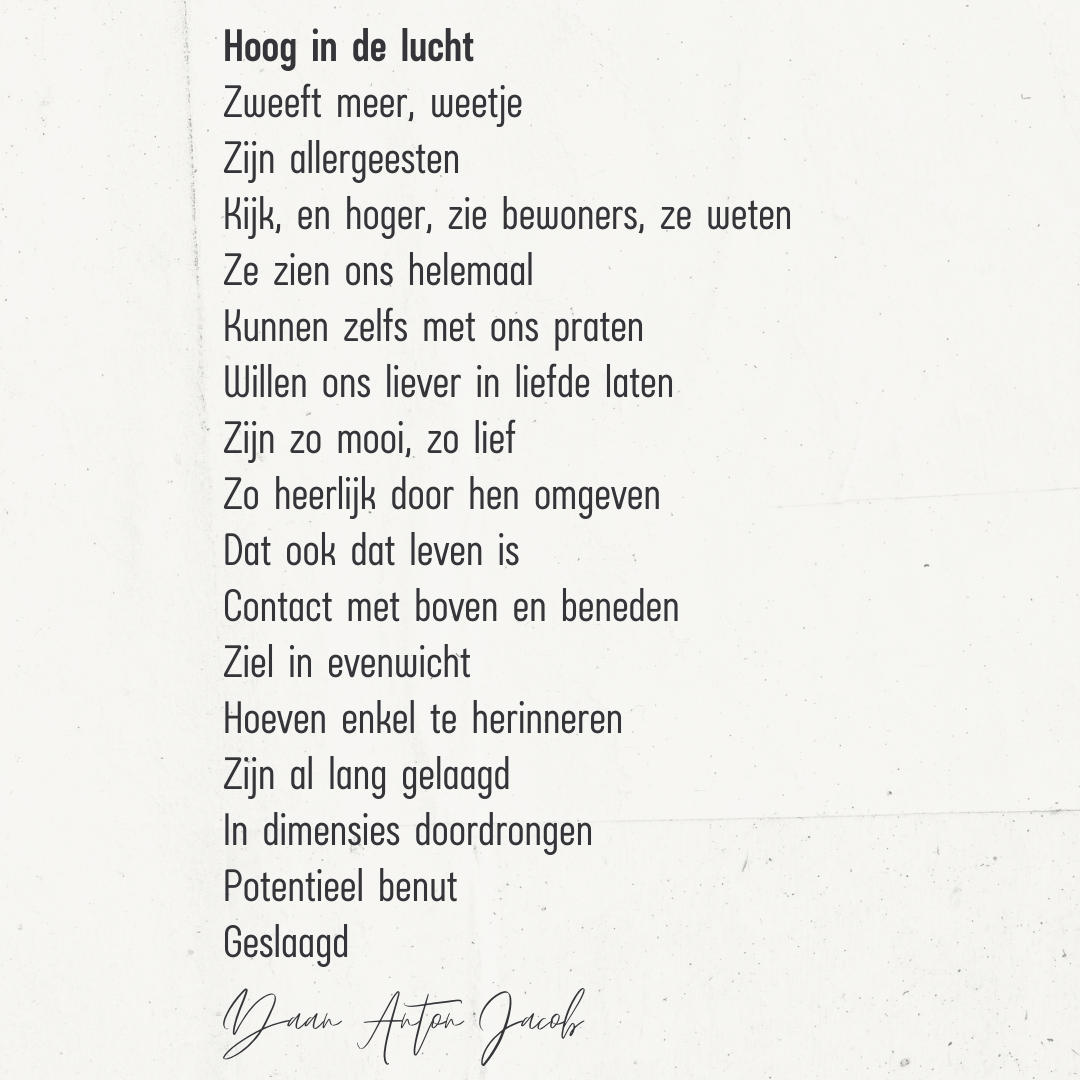 Hoog in de lucht
Zweeft meer, weetje
Zijn allergeesten
Kijk, en hoger, zie bewoners, ze weten
Ze zien ons helemaal
Kunnen zelfs met ons praten
Willen ons liever in liefde laten
Zijn zo mooi, zo lief
Zo heerlijk door hen omgeven
Dat ook dat leven is
Contact met boven en beneden
Ziel in evenwicht
Hoeven enkel te herinneren
Zijn al lang gelaagd
In dimensies doordrongen
Potentieel benut
Geslaagd
Daan Anton Jacob